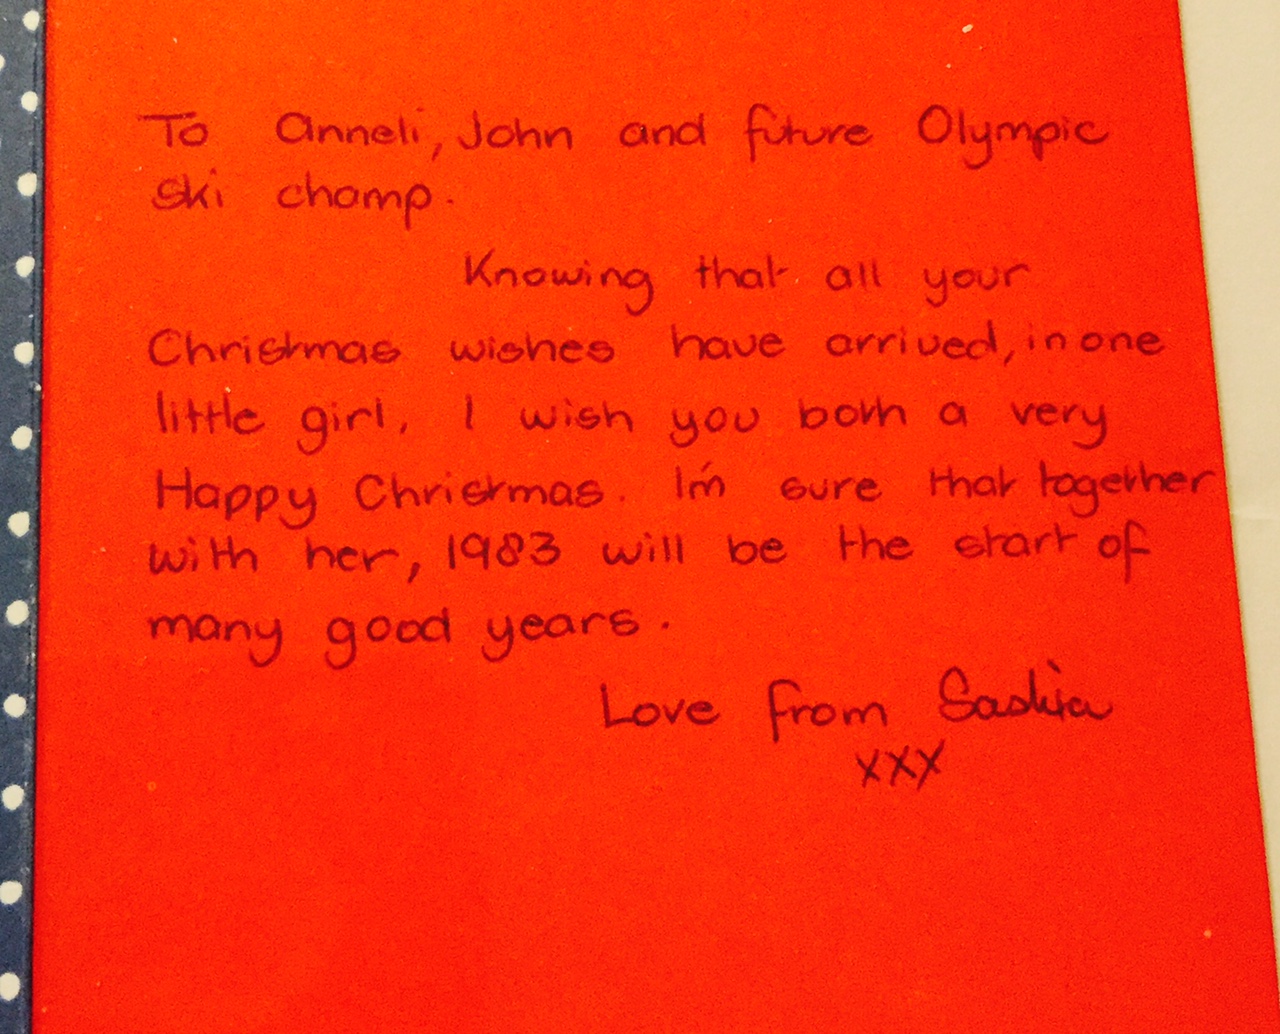 To Anneli, John and future Olympic
ski champ.
Knowing that all your
Christmas wishes have arrived, in one
little girl, I wish you both a very
Happy Christmas. I'm sure that together
with her, 1983 will be the start of
many good years.
Love from Saskia
xxx